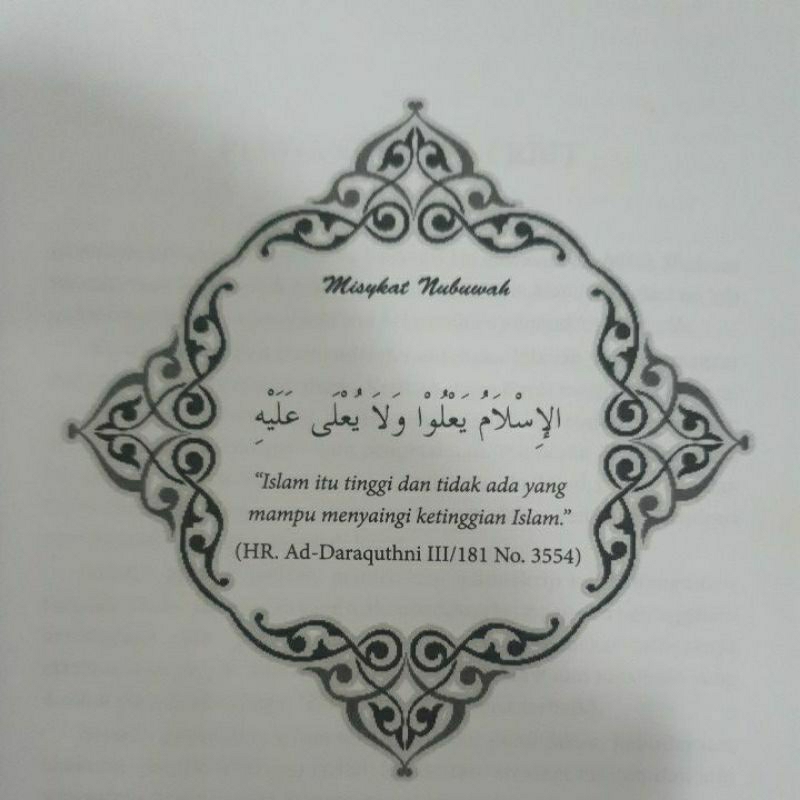 Misykat Nubuwah
الإِسْلَامُ يَعْلُوْا وَلَا يُعْلَى عَلَيْهِ
“Islam itu tinggi dan tidak ada yang
mampu menyaingi ketinggian Islam.”
(HR. Ad-Daraquthni III/181 No. 3554)